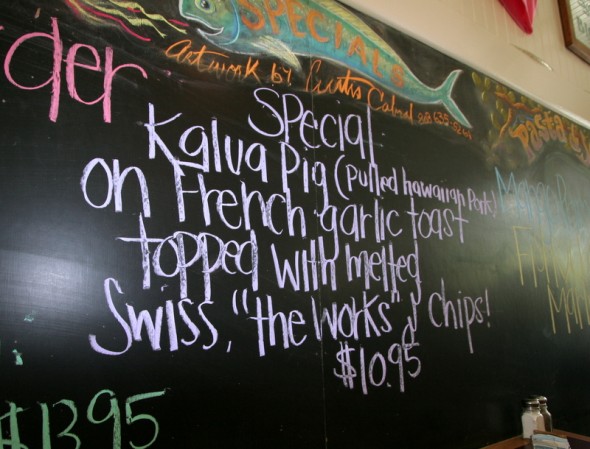 SPECIALS
Artwork by Curtis Cabral
der
Special
Kalua Pig (pulled hawaiian Pork)
on French garlic toast
topped with melted
Swiss, "the works" & chips!
$10.95
$13.95